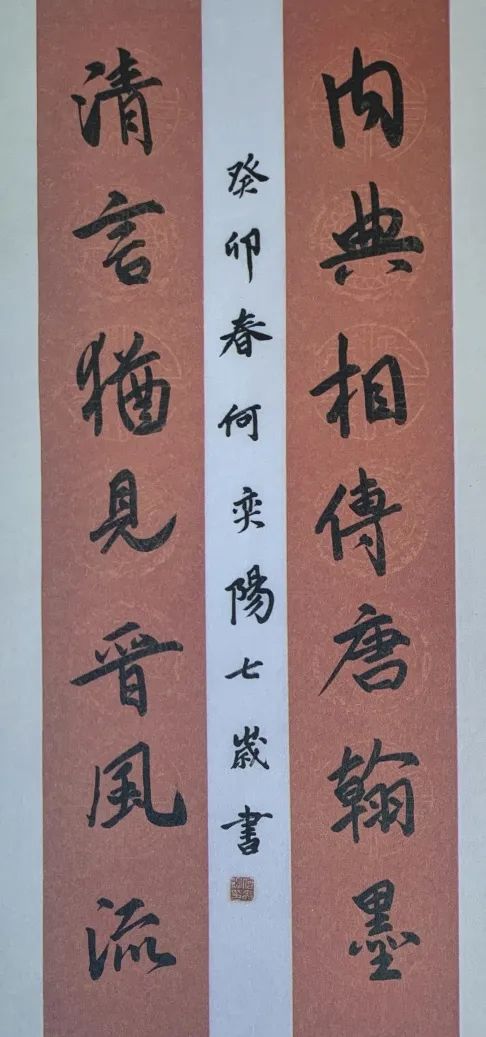 内典相傳唐翰墨
清言猶見晉風流
癸卯春何奕陽七歲書